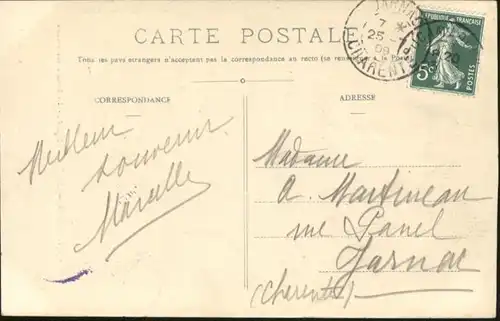 CARTE POSTALE
Tous les pays étrangers n'acceptent pas la correspondance au recto (se
CORRESPONDANCE
ADRESSE
JARNAC
7
25
09
CHARENTE
REPUBLIQUE FRANÇAISE
5c
POSTES
Meilleur
souvenir
Marcelle
Madame
A. Martineau
rue Panel
Jarnac
(Cherente)